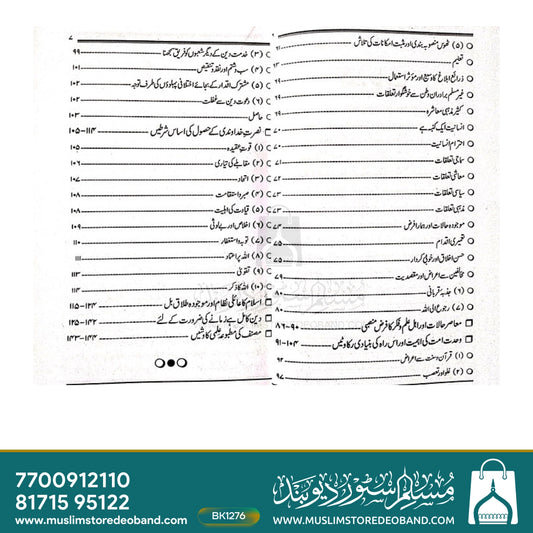 (۵) ٹھوس منصوبہ بندی اور مثبت امکانات کی تلاش ۶۱
تعلیم
ذرائع ابلاغ کا وسیع اور مؤثر استعمال
غیر مسلم برادران وطن سے خوشگوار تعلقات
کثیر مذہبی معاشرہ
انسانیت ایک کنبہ ہے
احترام انسانیت ۷۰
سماجی تعلقات ۷۱
معاشی تعلقات ۷۲
سیاسی تعلقات ۷۳
مذہبی تعلقات ۷۳
موجودہ حالات اور ہمارا فرض ۷۳
تعمیری اقدام
حسن اخلاق اور خوبی کردار ۷۵
مخالفین سے اعراض اور مقصدیت ۷۹
(۶) جذبہ قربانی ۸۰
(۷) رجوع الی اللہ ۸۰
معاصر حالات اور اہل علم وفکر کا فرض منصبی ۸۶-۹۰
وحدت امت کی اہمیت اور اس راہ کی بنیادی رکاوٹیں ۹۱-۱۰۴
(۱) قرآن وسنت سے اعراض ۹۴
(۲) غلو اور تعصب ۹۷
۷
(۳) خدمت دین کے دیگر شعبوں کو فریق سمجھنا ۹۹
(۴) سب وشتم اور نقد وتنقیص ۱۰۱
(۵) مشترک اقدار کے بجائے اختلافی پہلوؤں کی طرف توجہ ۱۰۲
(۶) دعوت دین سے غفلت ۱۰۲
حاصل ۱۰۳
نصرت خداوندی کے حصول کی اساسی شرطیں ۱۰۵-۱۱۴
(۱) قوت عقیدہ ۱۰۵
(۲) مقابلے کی تیاری ۱۰۶
(۳) اتحاد ۱۰۷
(۴) صبر واستقامت ۱۰۸
(۵) قیادت کی اہلیت ۱۰۸
(۶) اخلاص اور بے لوثی ۱۰۹
(۷) توبہ واستغفار ۱۱۰
(۸) اللہ پر اعتماد ۱۱۱
(۹) تقویٰ ۱۱۲
(۱۰) اللہ کا ذکر ۱۱۳
اسلام کا عائلی نظام اور موجودہ طلاق بل ۱۱۵-۱۳۴
دین کامل ہے زمانے کی ضرورت کے لئے ۱۳۵-۱۴۲
مصنف کی مطبوعہ علمی کاوشیں ۱۴۳-۱۴۴
7700912110
81715 95122
www.muslimstoredeoband.com
BK1276
مسلم اسٹور دیوبند
WWW.MUSLIMSTOREDEOBAND.COM